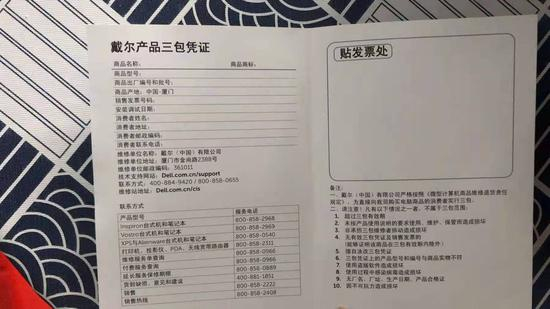 戴尔产品三包凭证
商品名称: 商品商标:
商品型号:
商品出厂编号和批号:
商品产地: 中国·厦门
销售发票号码:
安装调试日期:
消费者姓名:
消费者地址:
消费者邮政编码:
消费者联系电话:
维修单位名称: 戴尔（中国）有限公司
维修单位地址: 厦门市金尚路2388号
维修单位邮政编码: 361011
技术支持网站: Dell.com.cn/support
联系方式: 400-884-9420 / 800-858-0655
维修站地址: Dell.com.cn/cis
联系方式:
产品型号 服务电话
Inspiron台式机和笔记本 800-858-2968
Vostro台式机和笔记本 800-858-2969
XPS与Alienware台式机和笔记本 800-858-0540
打印机、投影仪、PDA、无线宽带路由器 800-858-2311
维修服务单查询 800-858-2966
付费服务查询 800-858-0889
延长服务保修期限 400-881-1851
货到缺损、意见和建议 800-858-2222
销售 800-858-2408
销售热线
贴发票处
备注:
一、戴尔（中国）有限公司严格按照《微型计算机商品修理更换退货责任
规定》，为直接向我司购买电脑商品的消费者实行三包。
二、请注意！凡有以下情况之一者，不属于三包范围:
1. 超过三包有效期
2. 未按产品使用说明的要求使用、维护、保管而造成损坏
3. 非承担三包维修者拆动造成损坏
4. 无有效三包凭证及销售发票的
(能够证明该商品在三包有效期内除外)
5. 擅自涂改三包凭证
6. 三包凭证上的产品型号和编号与商品实物不符
7. 使用盗版软件造成损坏
8. 使用过程中感染病毒造成损坏
9. 无厂名、厂址、生产日期、产品合格证
10. 因不可抗力造成损坏